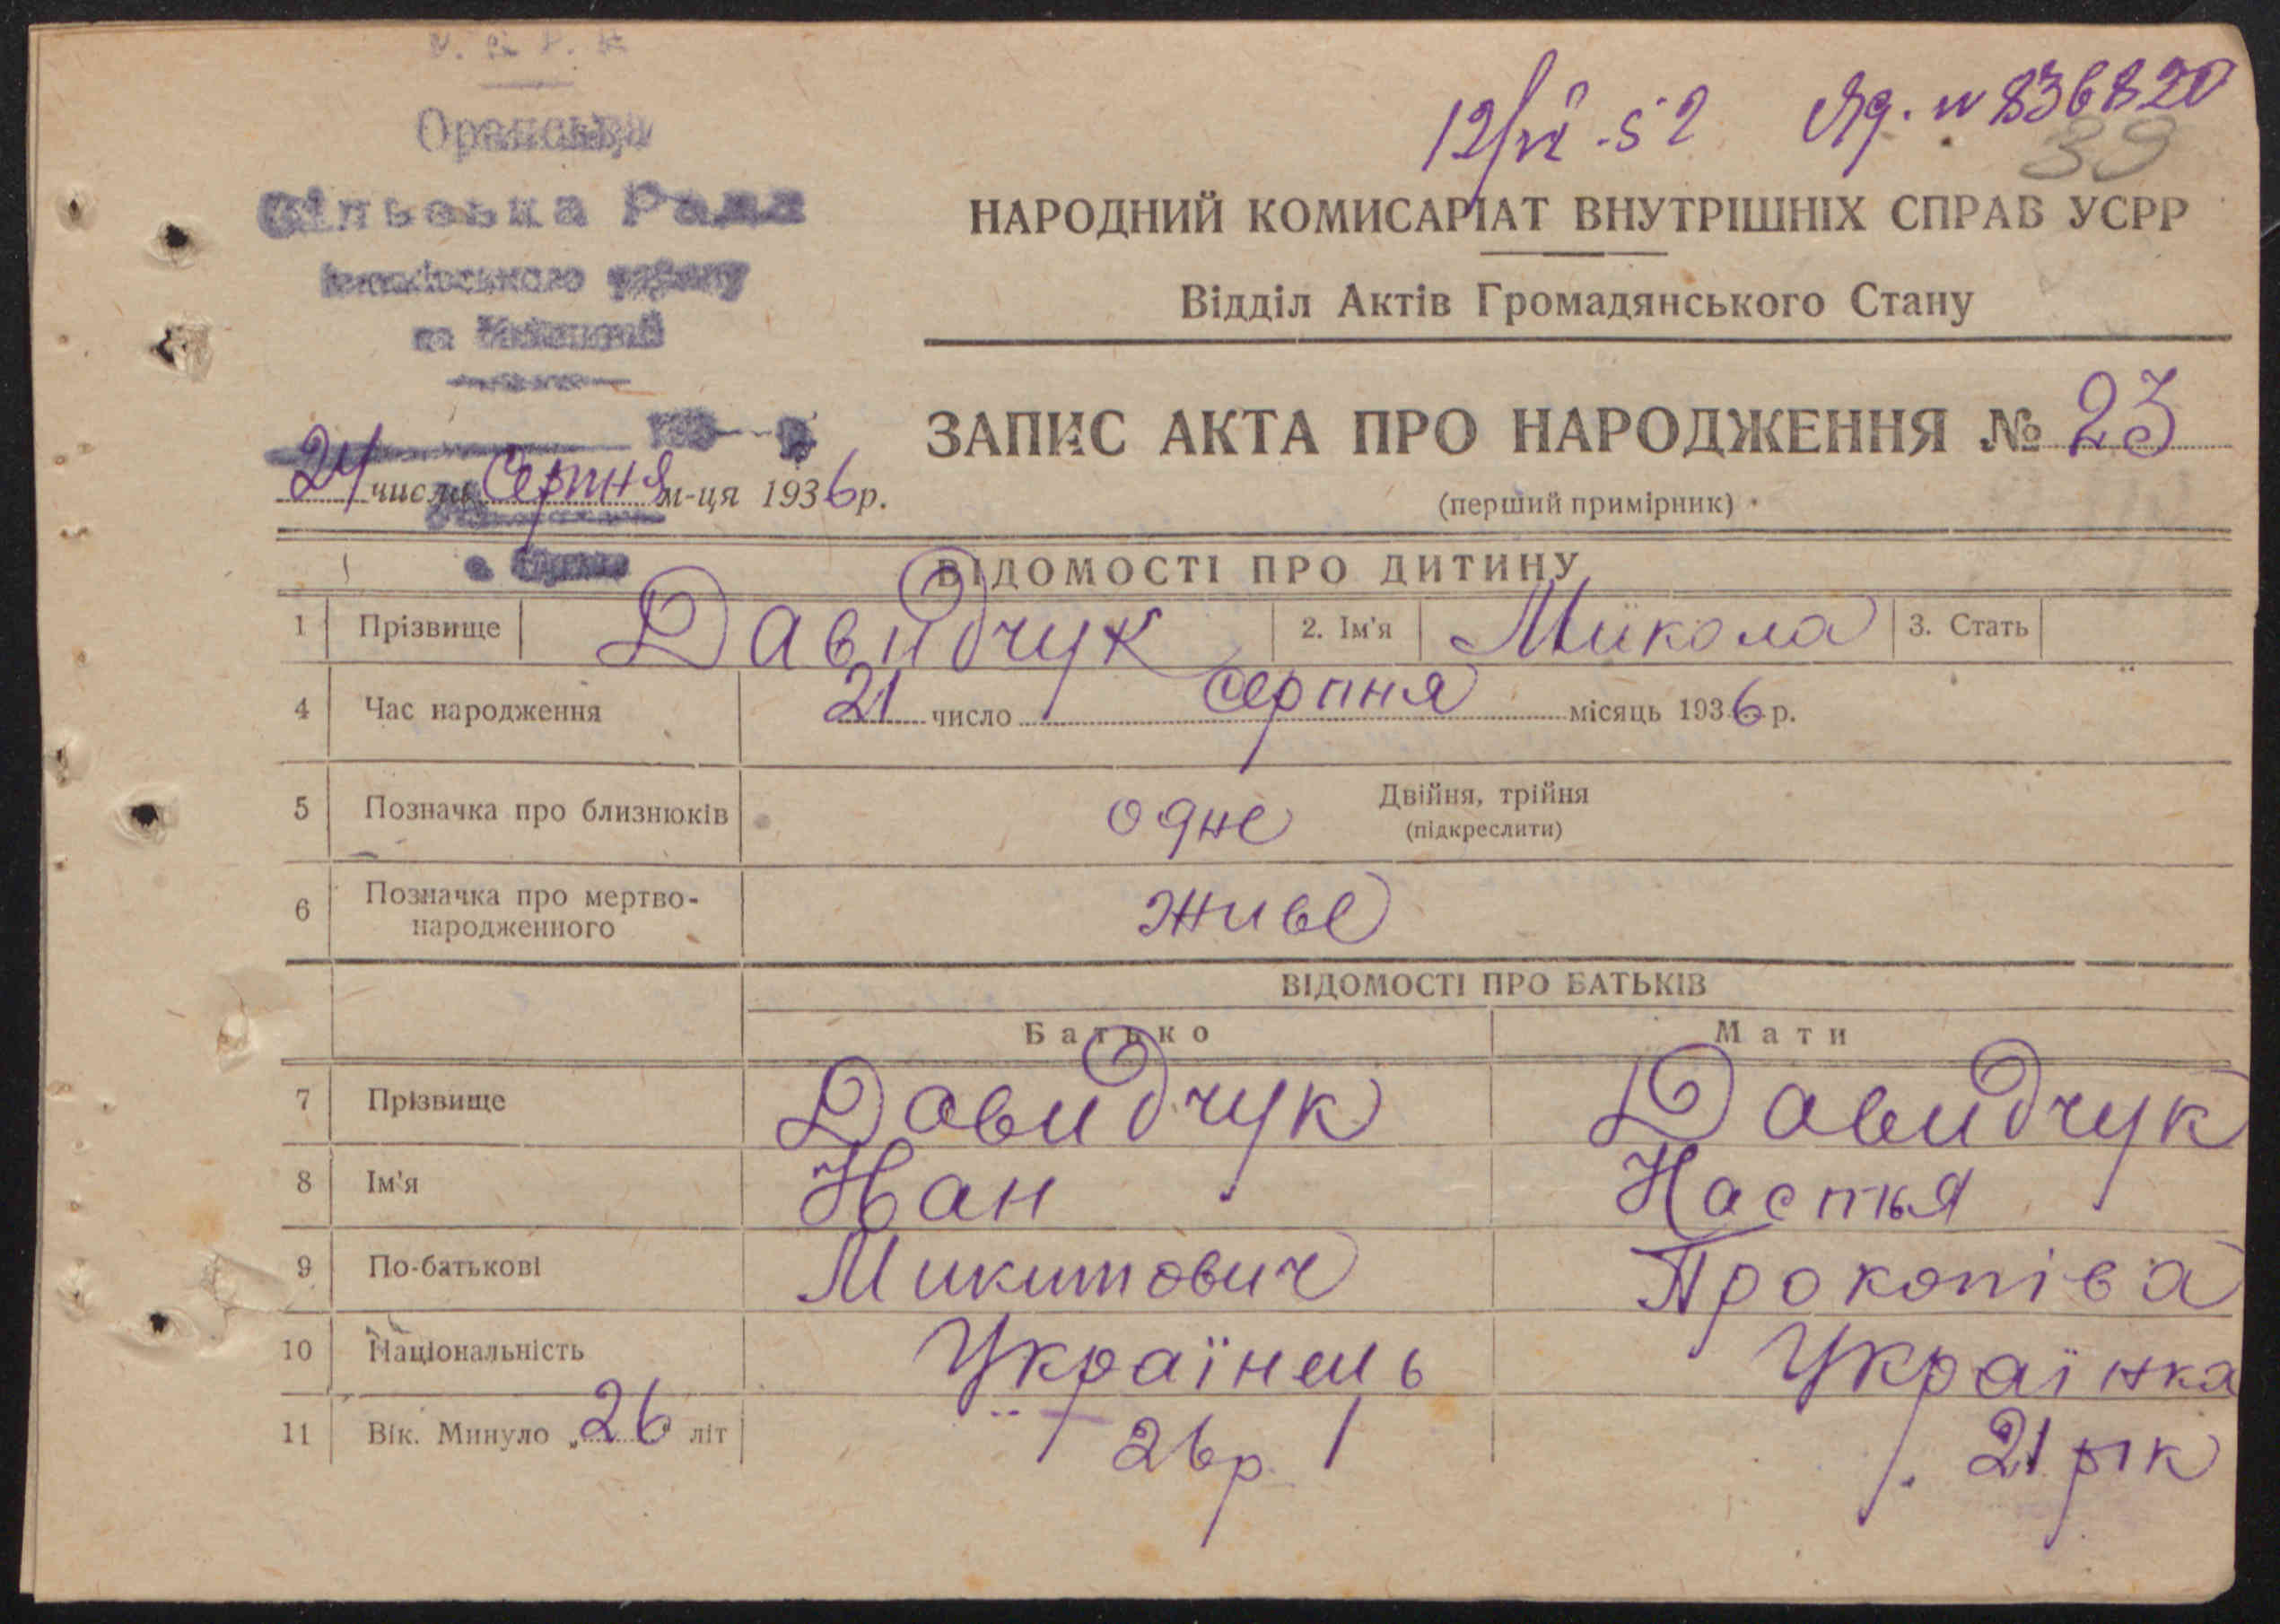 У. С. Р. Р.
Оранська
Сільська Рада
району
на
12/VI-52 № 836820
39
НАРОДНИЙ КОМИСАРІАТ ВНУТРІШНІХ СПРАВ УСРР
Відділ Актів Громадянського Стану
ЗАПИС АКТА ПРО НАРОДЖЕННЯ № 23
(перший примірник)
24 числа Серпня м-ця 1936 р.
ВІДОМОСТІ ПРО ДИТИНУ
1 Прізвище Давидчук 2. Ім'я Микола 3. Стать
4 Час народження 21 число серпня місяць 1936 р.
5 Позначка про близнюків одне Двійня, трійня
(підкреслити)
6 Позначка про мертво-
народженного живе
ВІДОМОСТІ ПРО БАТЬКІВ
Батько Мати
7 Прізвище Давидчук Давидчук
8 Ім'я Йван Настья
9 По-батькові Микитович Прокопіва
10 Національність Українець Українка
11 Вік. Минуло „26" літ 26 р. 21 рік